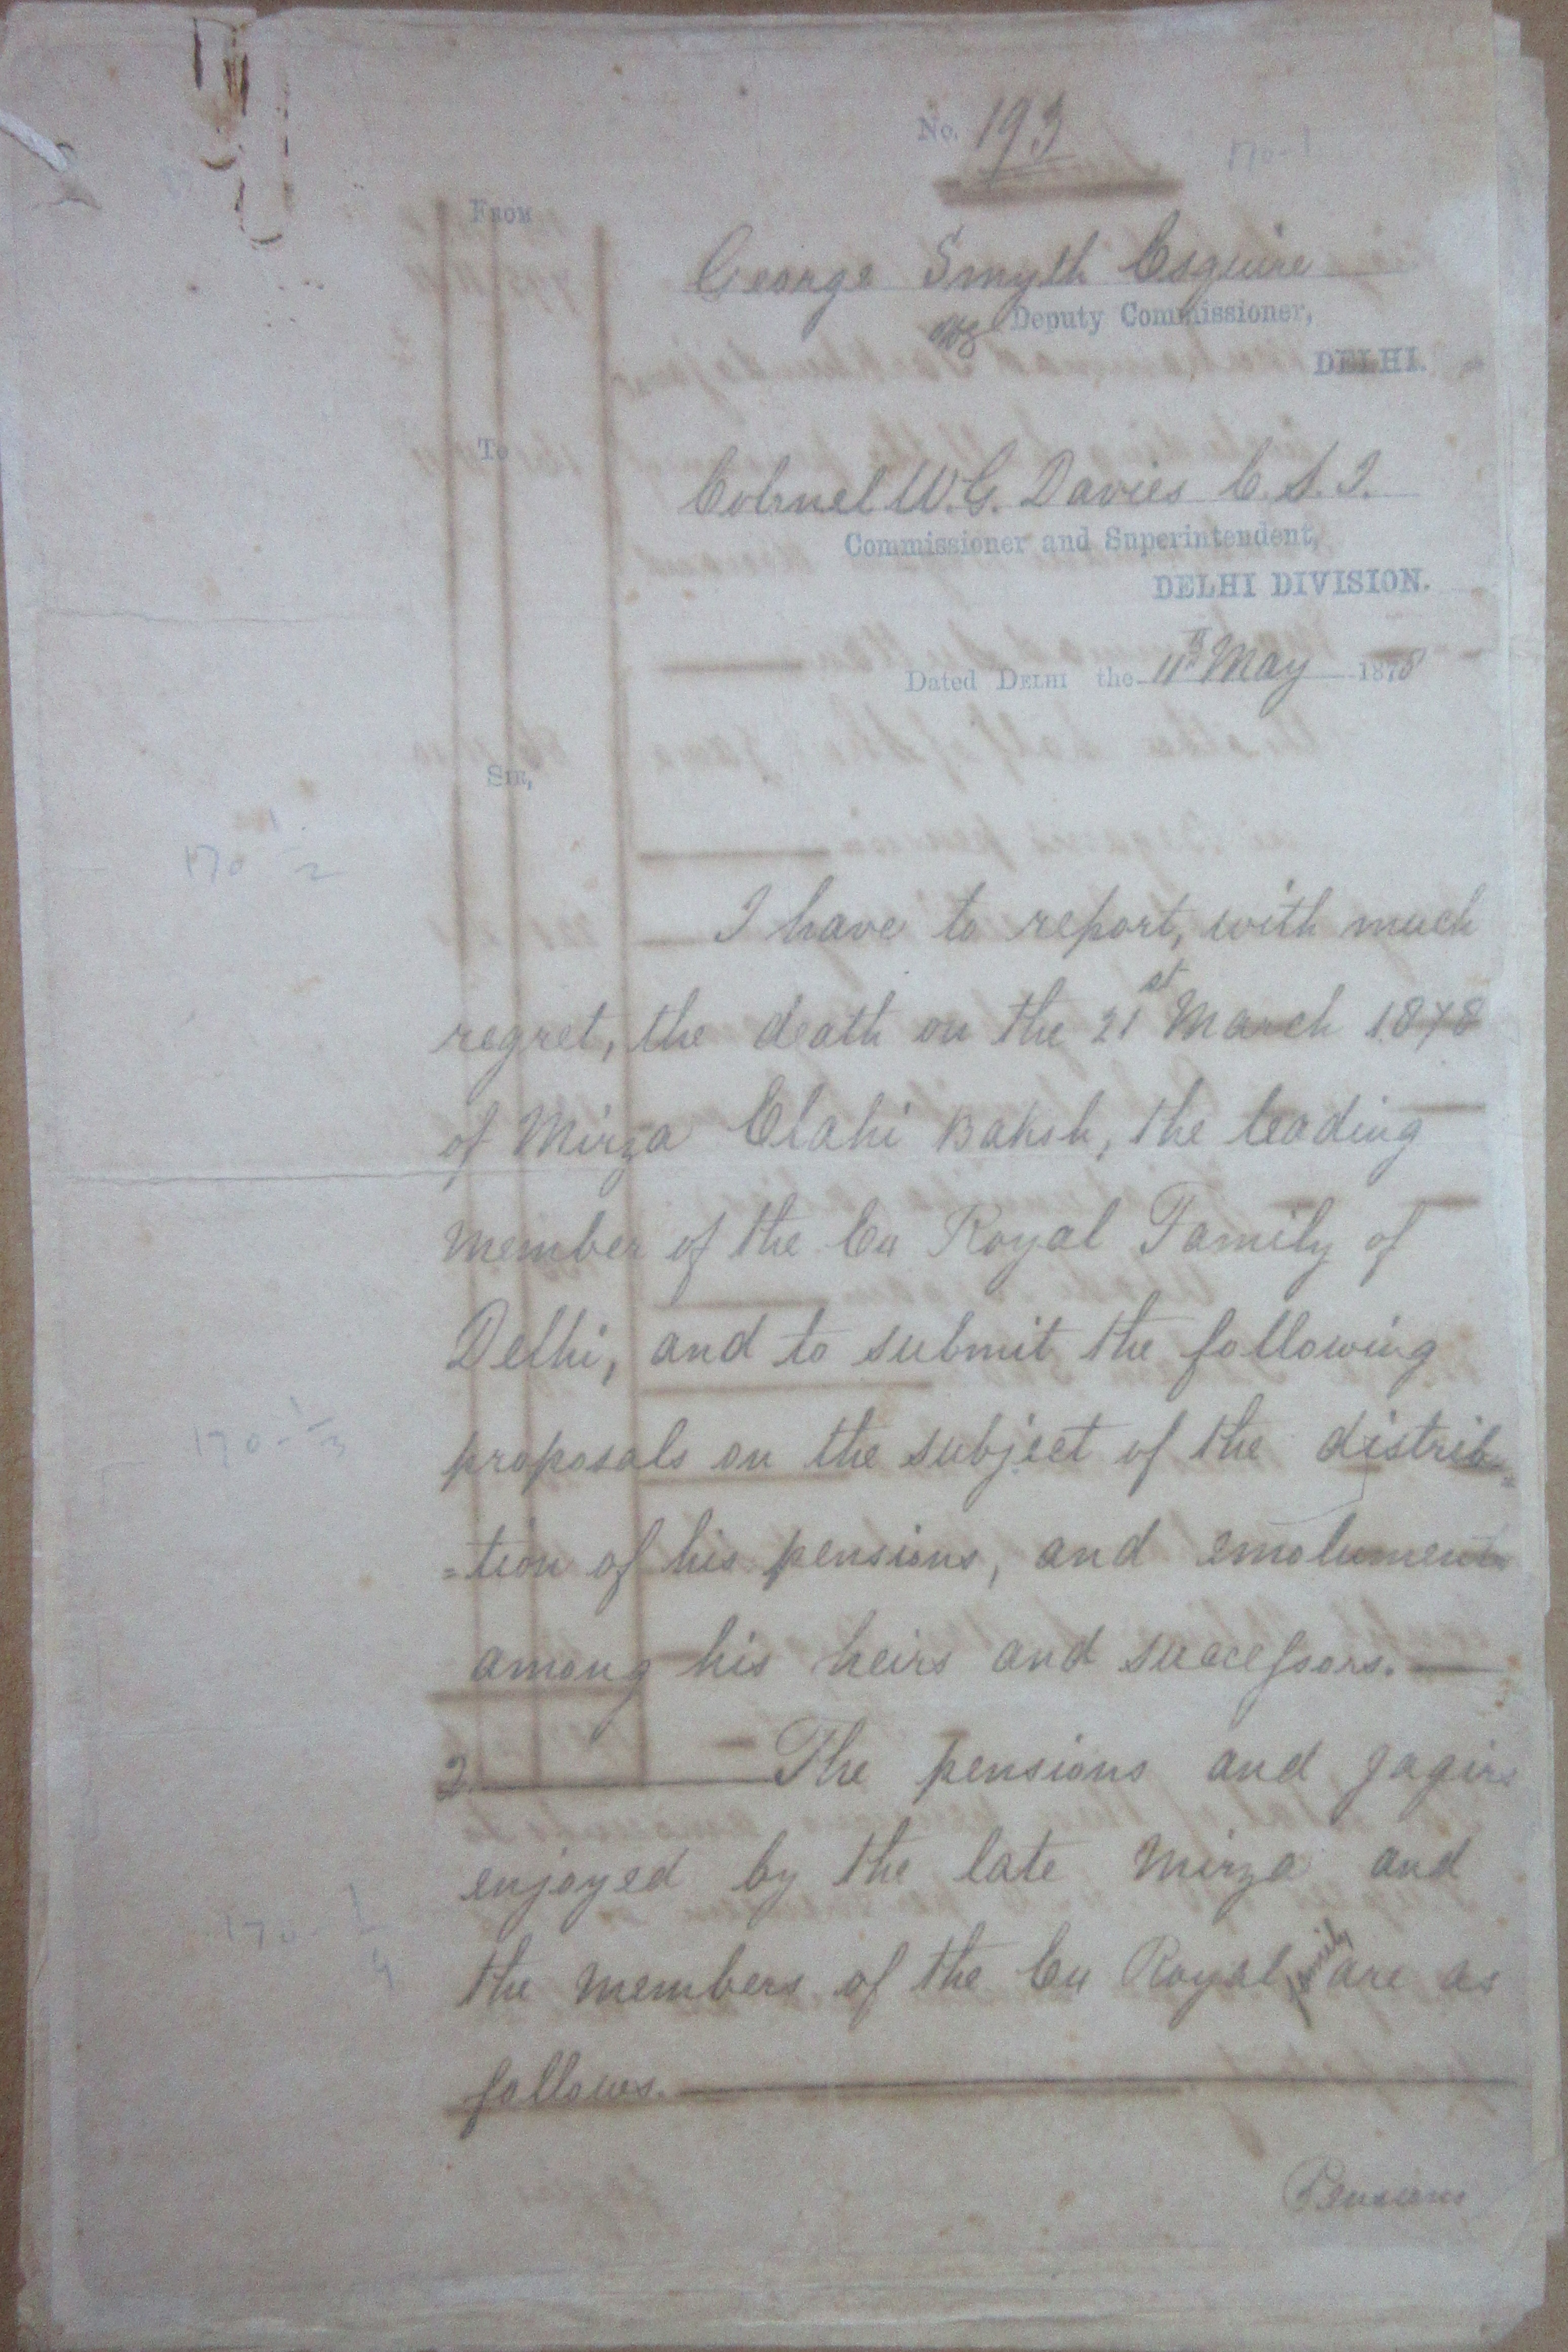 No. 193
170-1
FROM
George Smyth Esquire
Offg Deputy Commissioner,
DELHI.
To
Colonel W.G. Davies C.S.I.
Commissioner and Superintendent,
DELHI DIVISION.
Dated DELHI the 11th May 1878
SIR,
170 1/2
I have to report, with much
regret, the death on the 21st March 1878
of Mirza Elahi Baksh, the leading
member of the Ex Royal Family of
Delhi, and to submit the following
proposals on the subject of the distribu-
=tion of his pensions, and emoluments
170-1/3
among his heirs and successors.
2. The pensions and Jagirs
enjoyed by the late Mirza and
the members of the Ex Royal family are as
170-1/4
follows.
Pensions